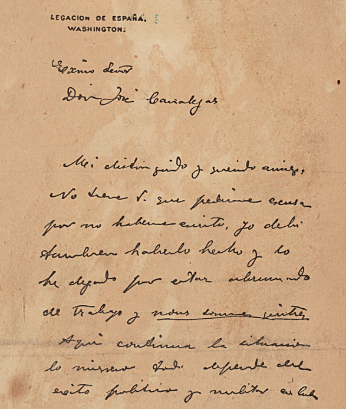 LEGACION DE ESPAÑA.
WASHINGTON.
Excmo Señor
Don José Canalejas
Mi distinguido y querido amigo,
No tiene V. que pedirme excusa
por no haberme escrito, yo debi
tambien haberlo hecho y lo
he dejado por estar abrumado
de trabajo y nous sommes quittes
Aqui continua la situacion
lo mismo todo depende del
exito politico y militar en